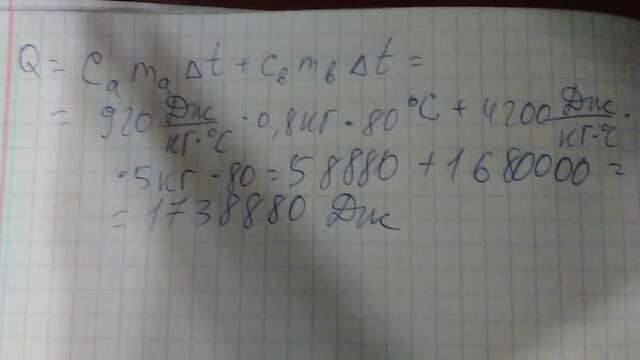 Q = Cₐ mₐ Δt + Cв mв Δt =
= 920 Дж/кг·°C · 0,8кг · 80°C + 4200 Дж/кг·°C ·
· 5кг · 80 = 58880 + 1680000 =
= 1738880 Дж